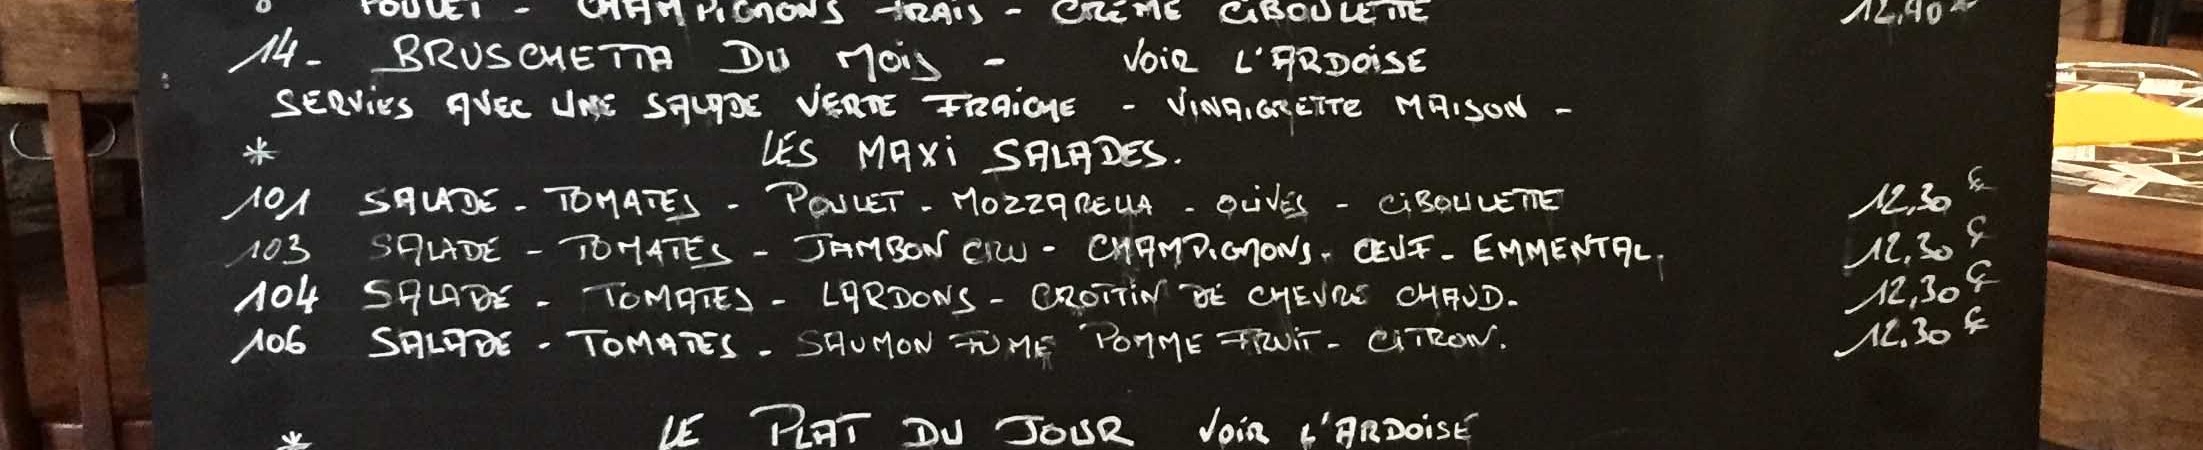 POULET - CHAMPIGNONS FRAIS - CRÈME CIBOULETTE 12,90€
14- BRUSCHETTA DU MOIS - VOIR L'ARDOISE
SERVIES AVEC UNE SALADE VERTE FRAICHE - VINAIGRETTE MAISON -
* LES MAXI SALADES.
101 SALADE - TOMATES - POULET - MOZZARELLA - OLIVES - CIBOULETTE 12,30€
103 SALADE - TOMATES - JAMBON CRU - CHAMPIGNONS - ŒUF - EMMENTAL. 12,30€
104 SALADE - TOMATES - LARDONS - CROTTIN DE CHEVRE CHAUD. 12,30€
106 SALADE - TOMATES - SAUMON FUME POMME FRUIT - CITRON. 12,30€
* LE PLAT DU JOUR VOIR L'ARDOISE